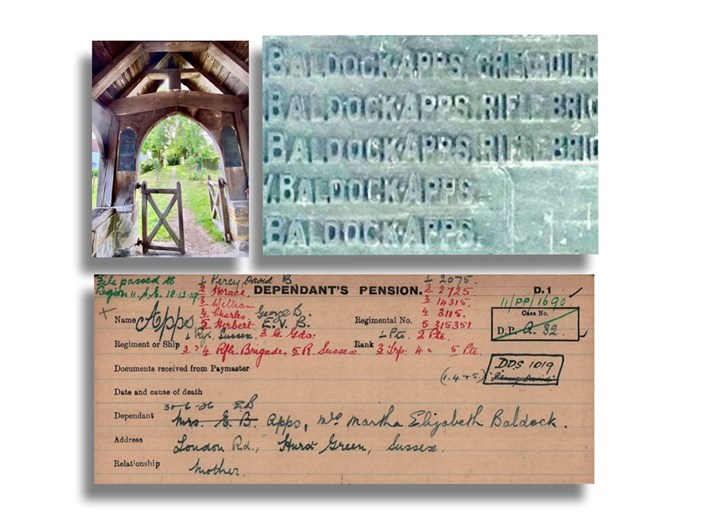 BALDOCK APPS. GRENADIER
BALDOCK APPS. RIFLE BRIG
BALDOCK APPS. RIFLE BRIG
V. BALDOCK APPS.
BALDOCK APPS.
File passed to
Region 11. 18.12.19
1/ Percy David B
2 Horace.
3 William
4 Charles. George B.
5 Herbert. E. V. B.
DEPENDANT'S PENSION.
1/ 2075.
2 2725
3 14315.
4 3115.
5 315351.
D. 1
11/DP/1690
Case No.
D.P. 32.
Name Apps
Regimental No.
Regiment or Ship 1/ Ryl. Sussex. 2 G. Gds:
3 & 4 Rfle. Brigade, 5 R. Sussex.
Rank 1/ Pte. 2 Pte.
5 Pte.
Documents received from Paymaster
DDS 1019
Date and cause of death
30-6-26 E.B
Dependant Mrs. E. B. Apps, Mrs Martha Elizabeth Baldock.
Address London Rd., Hurst Green, Sussex.
Relationship Mother.